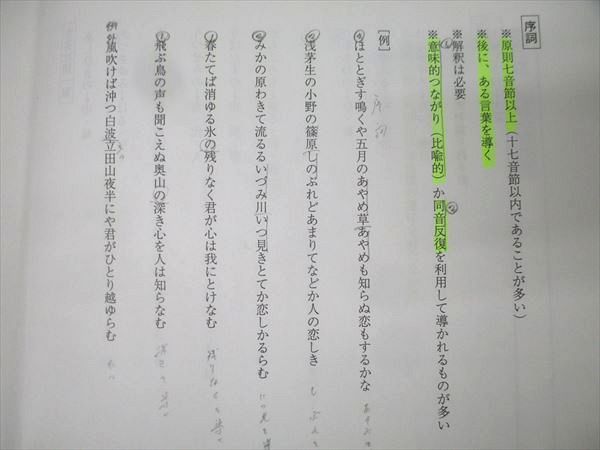 序詞
※原則七音節以上（十七音節以内であることが多い）
※後に、ある言葉を導く
※解釈は必要
※意味的つながり（比喩的）か同音反復を利用して導かれるものが多い
① ②
［例］
序詞
ほととぎす鳴くや五月のあやめ草あやめも知らぬ恋もするかな
浅茅生の小野の篠原しのぶれどあまりてなどか人の恋しき
みかの原わきて流るるいづみ川いつ見きとてか恋しかるらむ
春たてば消ゆる氷の残りなく君が心は我にとけなむ
飛ぶ鳥の声も聞こえぬ奥山の深き心を人は知らなむ
風吹けば沖つ白波立田山夜半にや君がひとり越ゆらむ